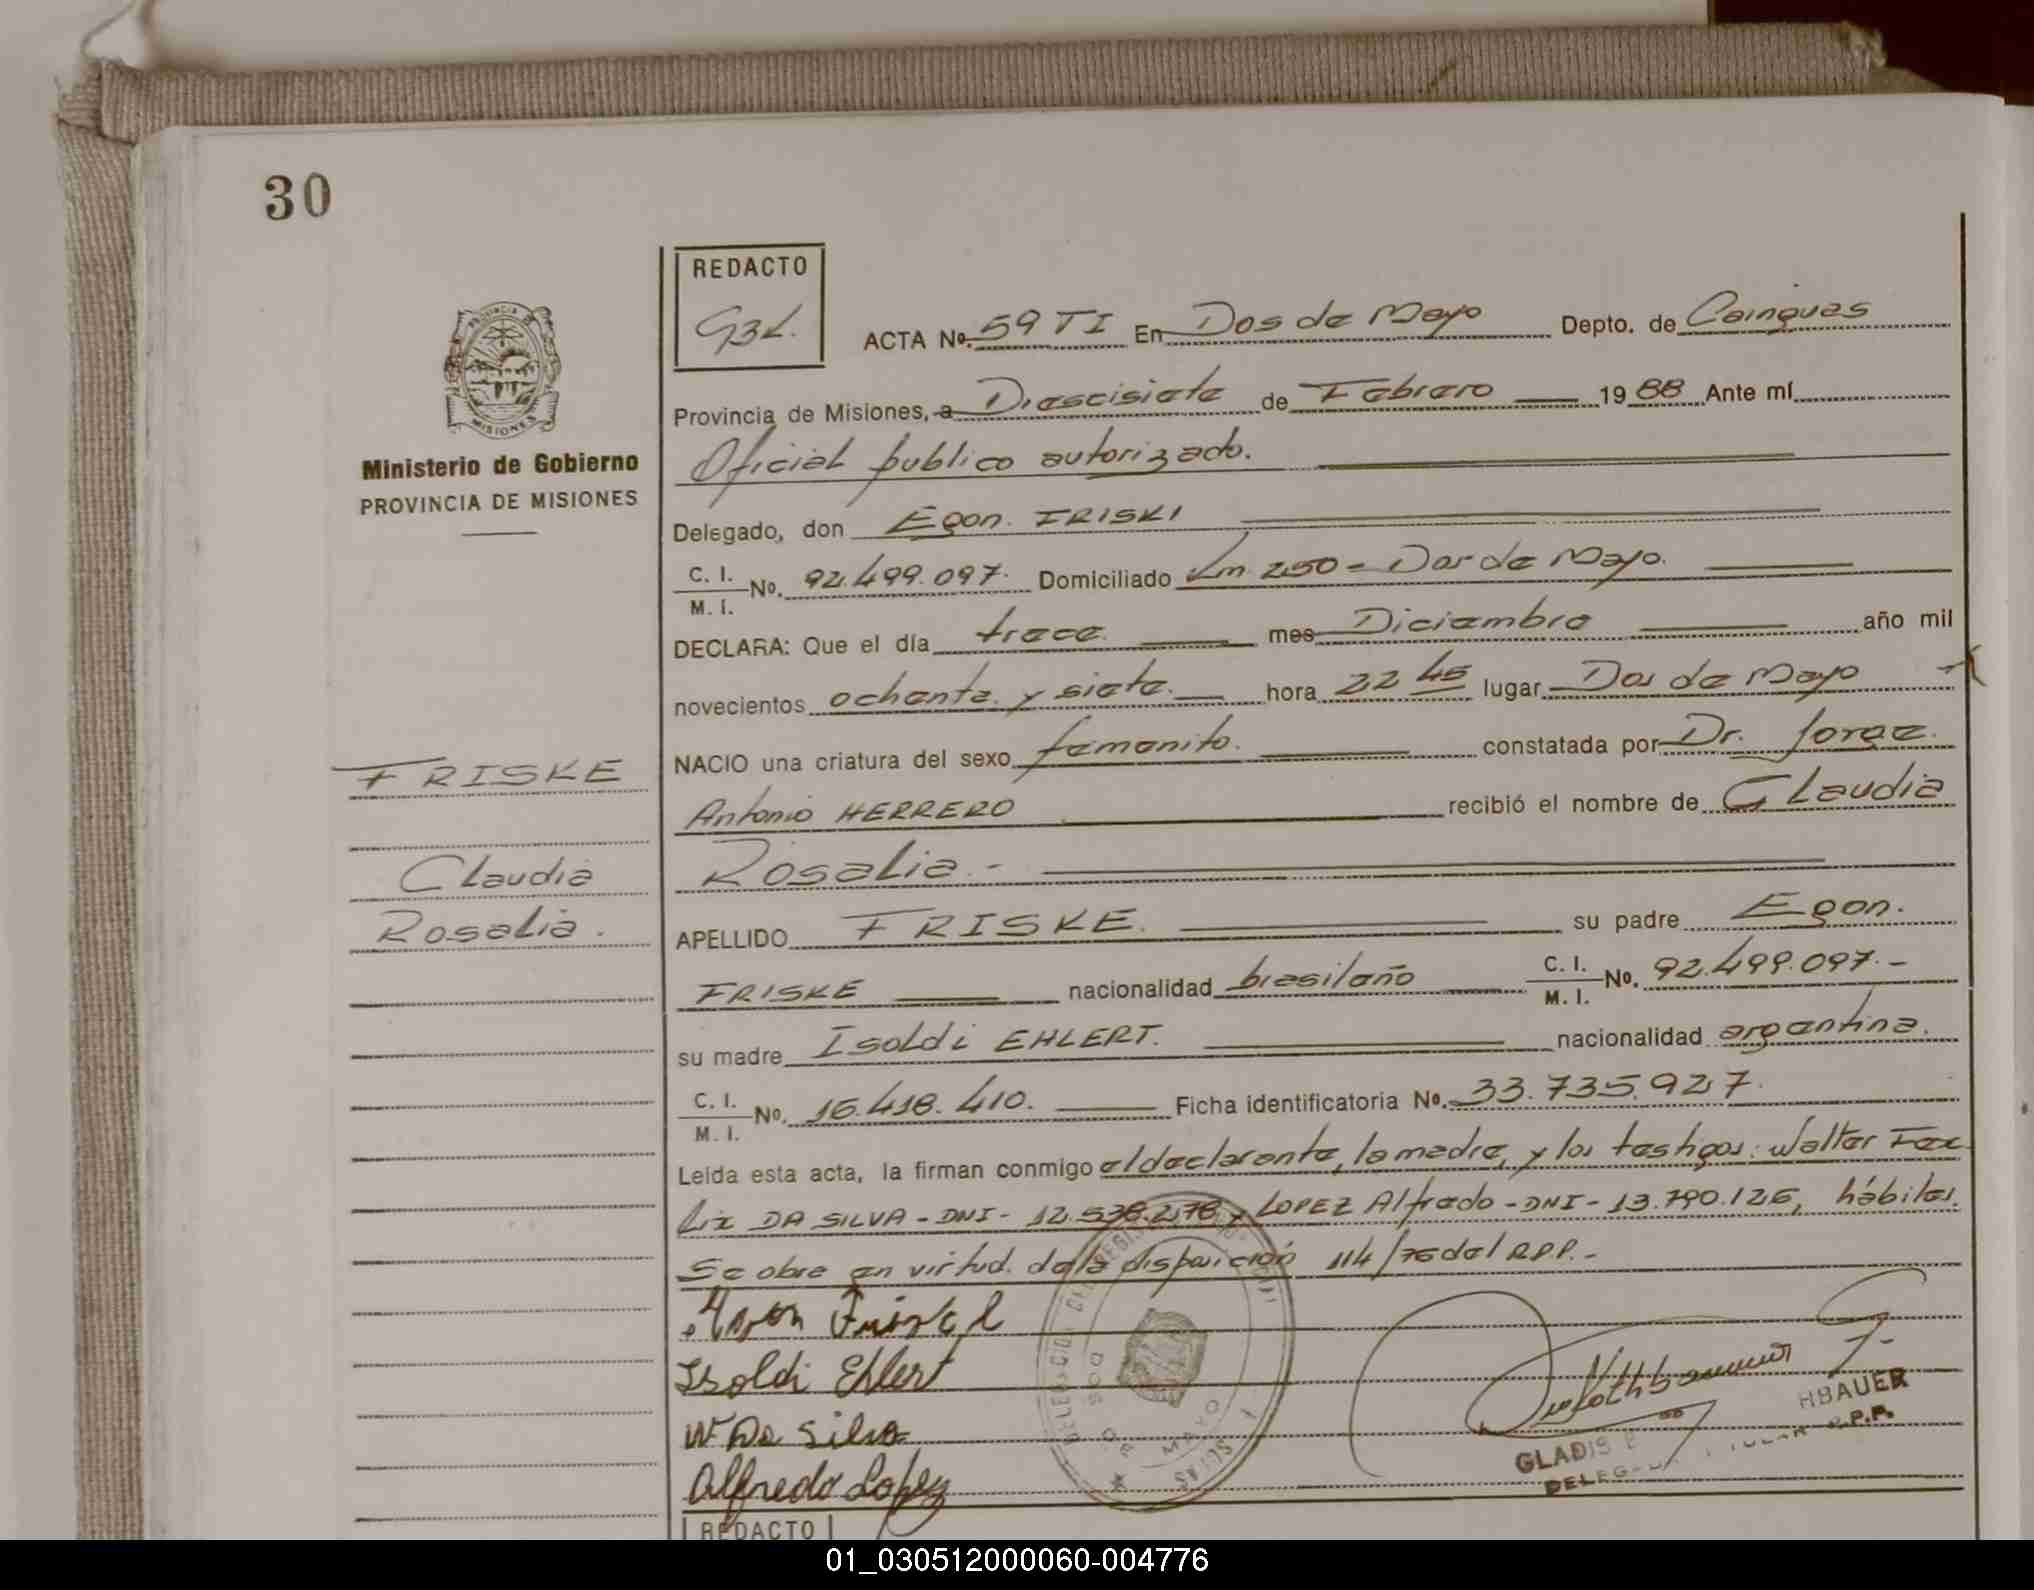 30
REDACTO
G3L.
ACTA Nº. 59 TI En Dos de Mayo Depto. de Cainguas
Provincia de Misiones, a Diescisiete de Febrero 1988 Ante mí
Oficial publico autorizado.
Ministerio de Gobierno
PROVINCIA DE MISIONES
Delegado, don Egon. FRISKI
C. I. M. I. Nº. 92.499.097. Domiciliado Km 250 - Dos de Mayo.
DECLARA: Que el día trece. mes Diciembre año mil
novecientos ochenta y siete. hora 22 45 lugar Dos de Mayo
NACIO una criatura del sexo femenito. constatada por Dr. Jorge
Antonio HERRERO recibió el nombre de Claudia
Rosalia. -
APELLIDO FRISKE. su padre Egon.
FRISKE nacionalidad brasileño C. I. M. I. Nº. 92.499.097. -
su madre Isoldi EHLERT. nacionalidad argentina.
C. I. M. I. Nº. 16.418.410. Ficha identificatoria Nº. 33.735.927.
Leída esta acta, la firman conmigo el declarante, la madre, y los testigos: Walter Fe
lix DA SILVA - DNI - 12.538.278 y LOPEZ Alfredo - DNI - 13.790.126, hábiles.
Se obra en virtud. de la disposición 114/76 del R.P.P. -
FRISKE
Claudia
Rosalia.
Isoldi Ehlert
W Da Silva
Alfredo Lopez
GLADIS
HBAUER
REDACTO
01_030512000060-004776